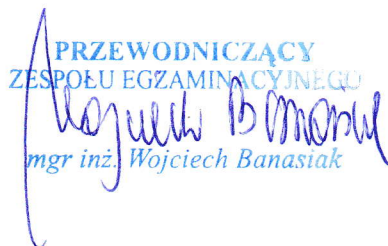 PRZEWODNICZĄCY
ZESPOŁU EGZAMINACYJNEGO
Wojciech Banasiak
mgr inż. Wojciech Banasiak